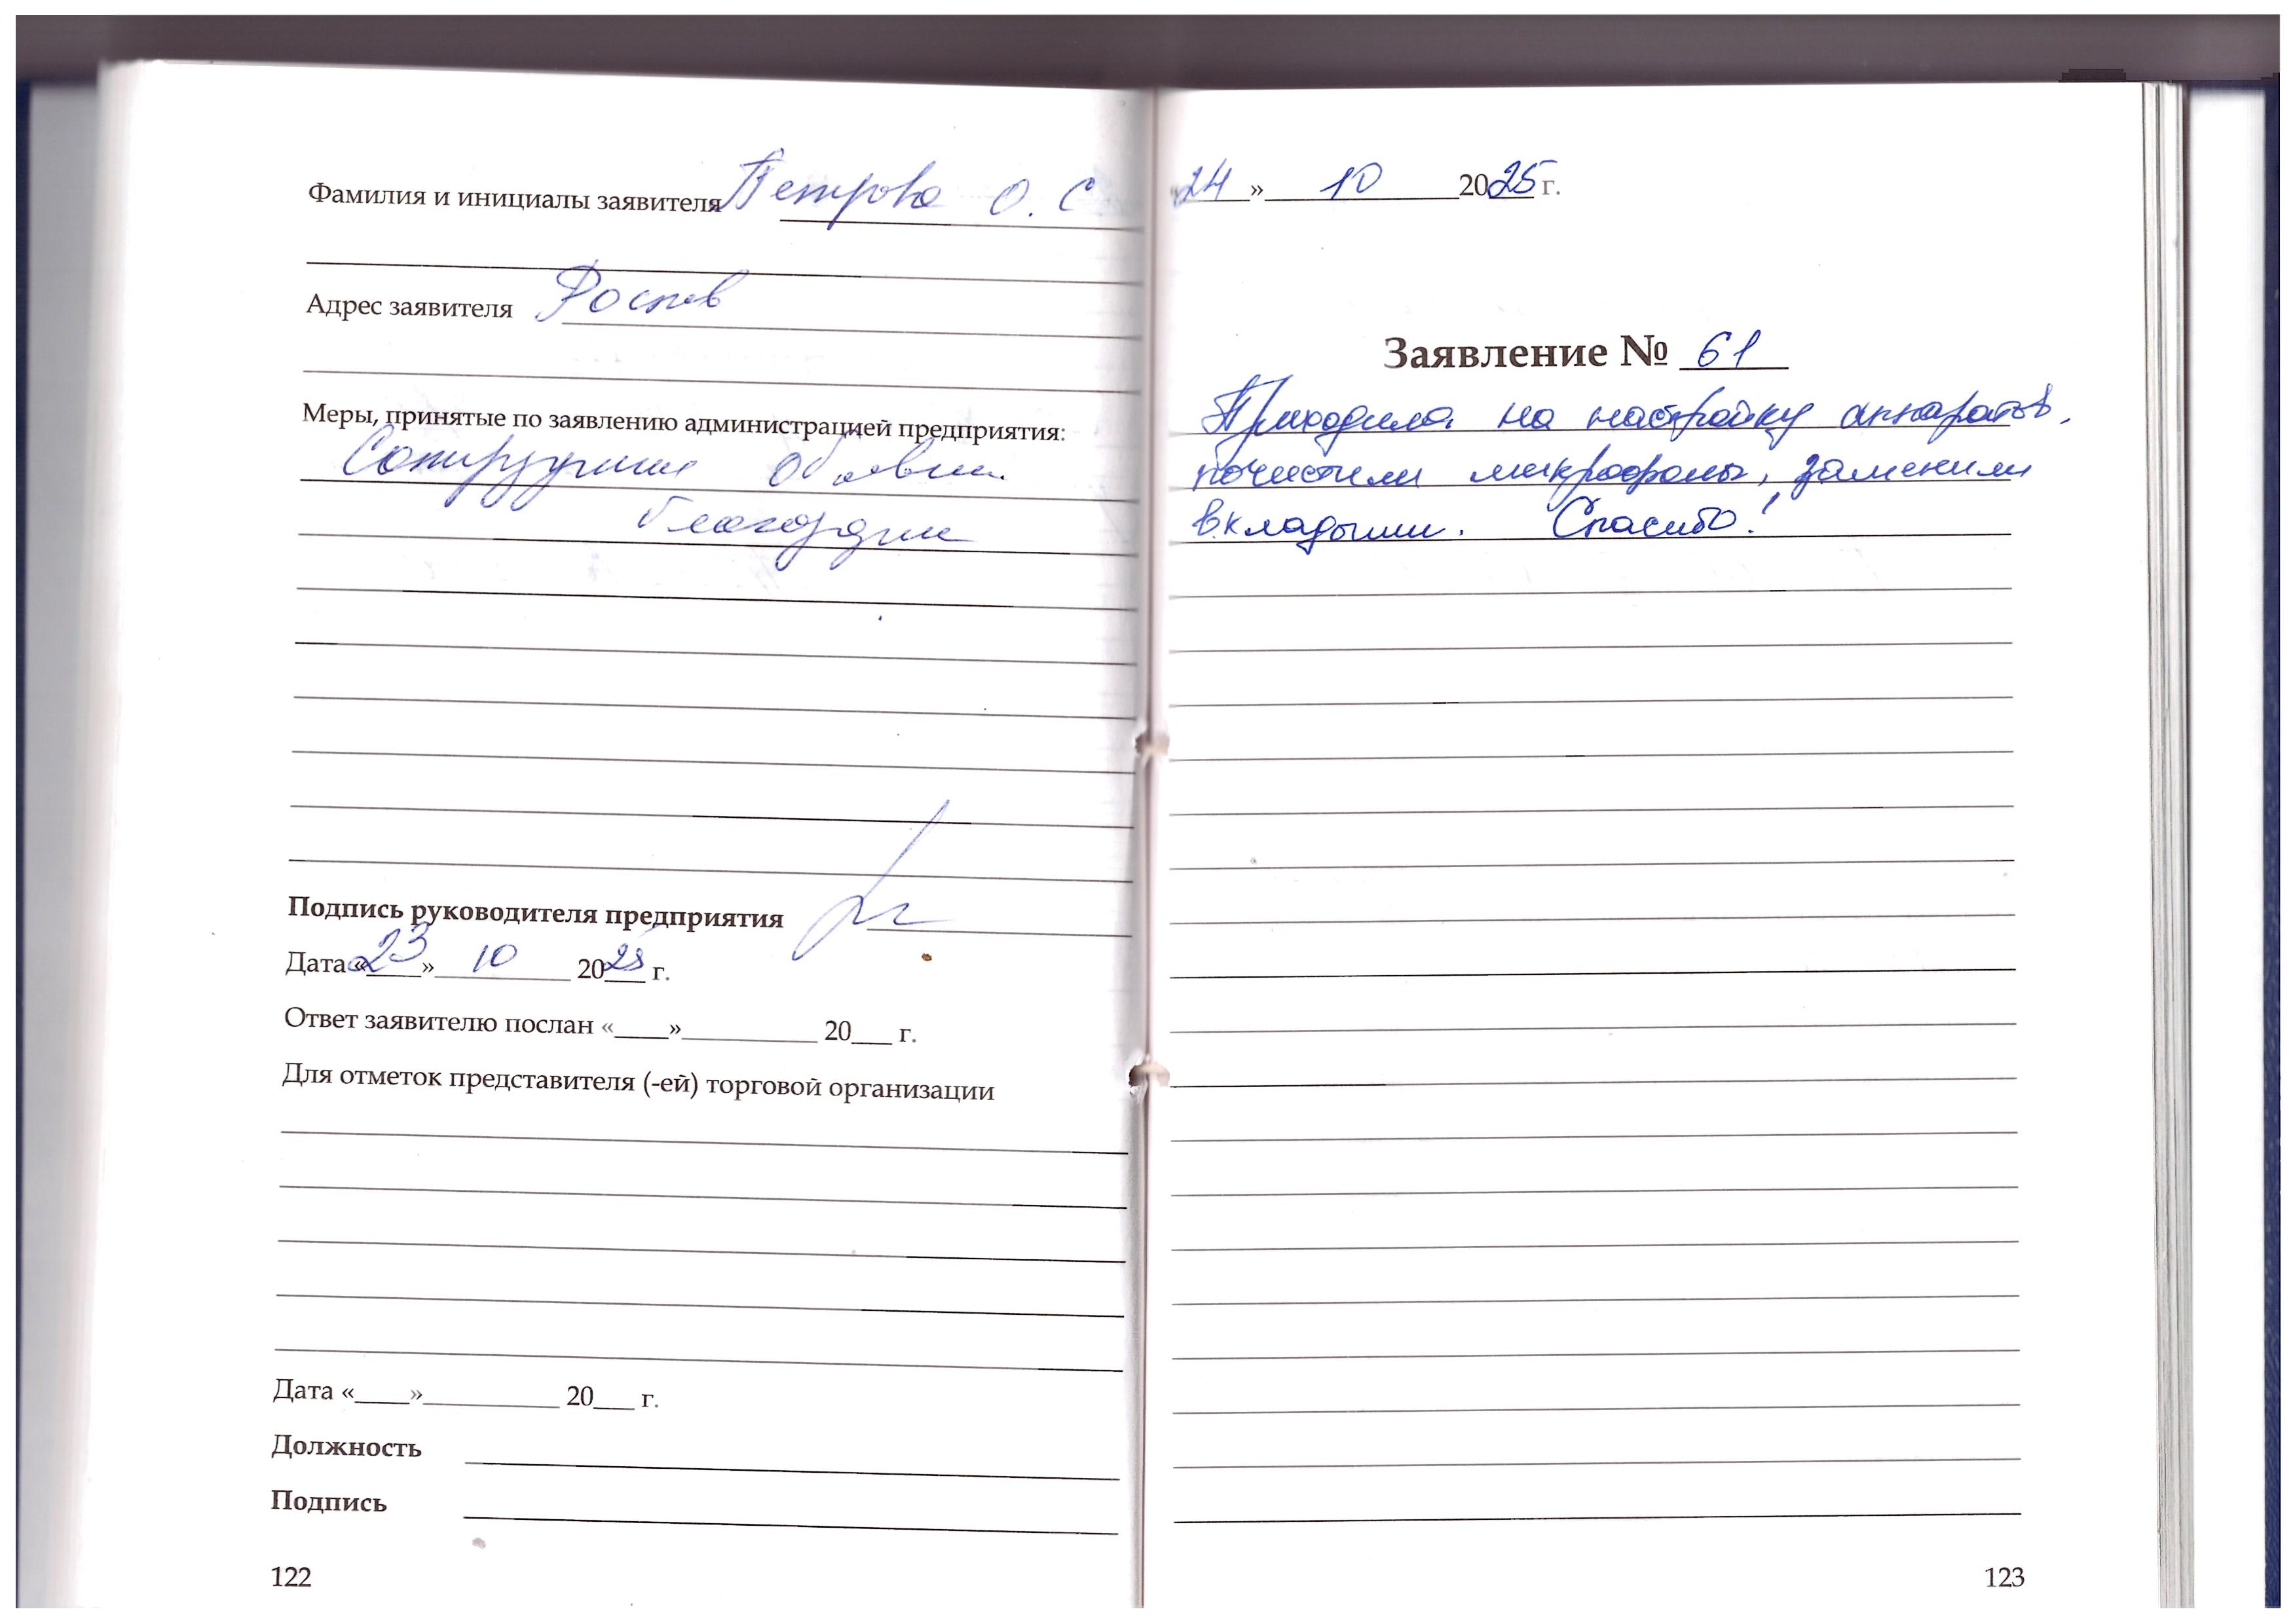 Фамилия и инициалы заявителя Петрова О. С
Адрес заявителя Ростов
Меры, принятые по заявлению администрацией предприятия:
Сотруднику объявлена
благодарн
Подпись руководителя предприятия
Дата «23» 10 2025 г.
Ответ заявителю послан «____»__________ 20___ г.
Для отметок представителя (-ей) торговой организации
Дата «____»__________ 20___ г.
Должность
Подпись
122
24» 10 2025 г.
Заявление № 61
Приходила на настройку аппаратов,
почистили микрофоны, заменили
вкладыши. Спасибо!
123